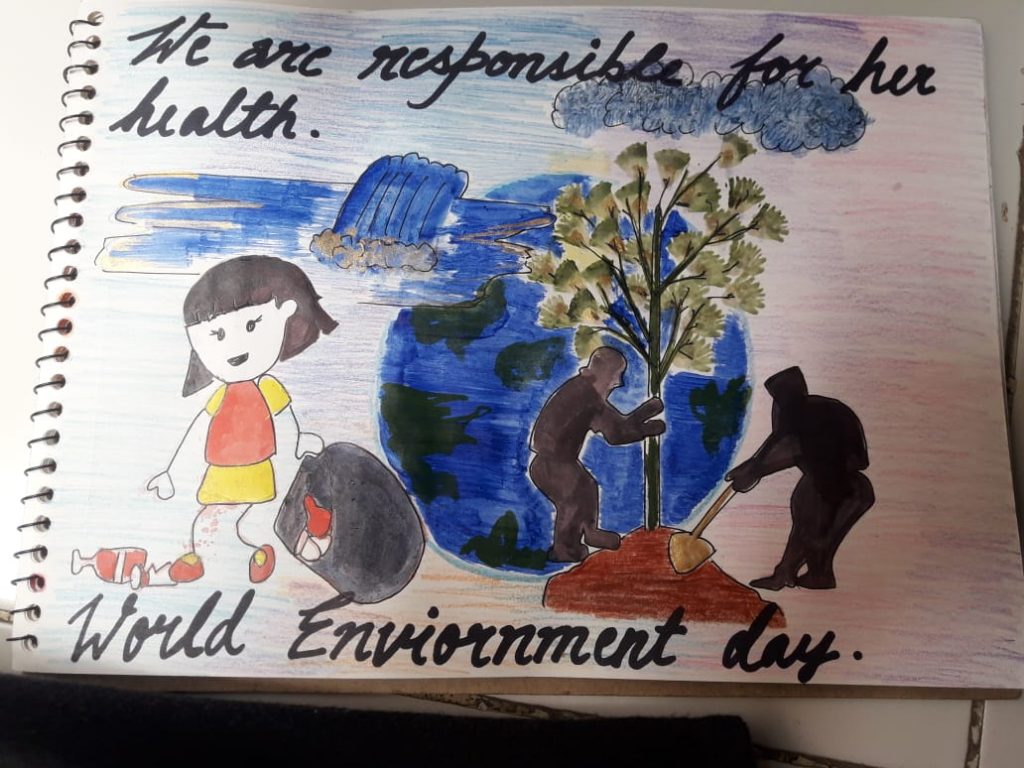 We are responsible for her
health.
World Enviornment day.